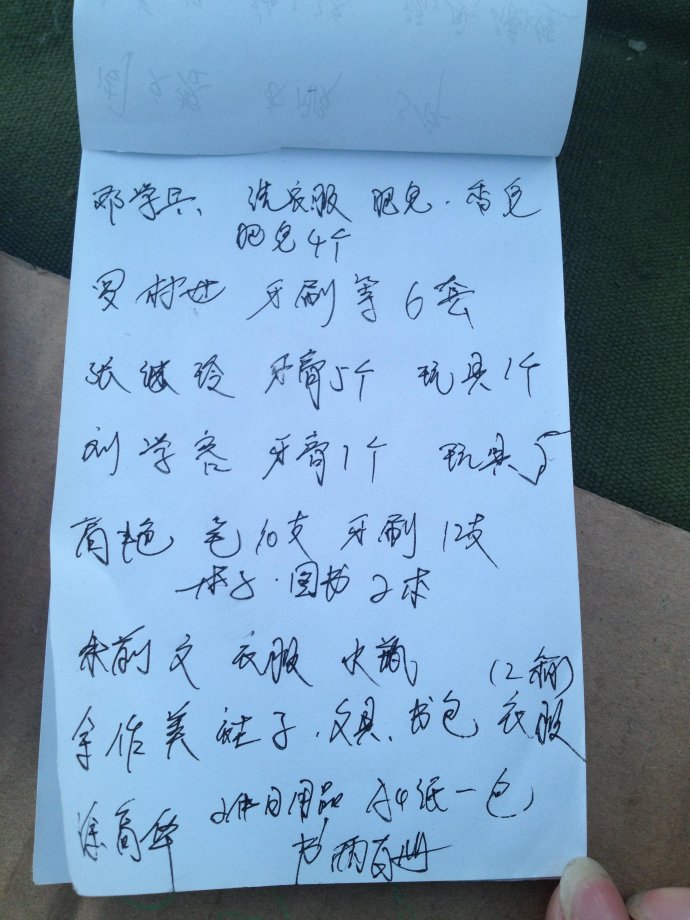 邓学兵 洗衣服 肥皂.香皂
肥皂4个
罗树世 牙刷等6套
张继玲 牙膏5个 玩具1个
刘学容 牙膏1个 玩具5
高艳 笔10支 牙刷12支
本子.图书2本
余前文 衣服 水瓶 (2箱)
余作美 鞋子.文具.书包 衣服
涂高华 2件日用品 A4纸一包
书两百册